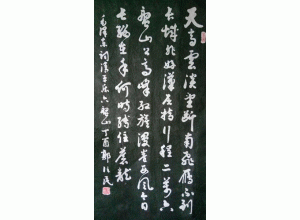 天高雲淡望斷南飛雁不到
長城非好漢屈指行程二萬六
盤山上高峰紅旗漫卷西風今日
長纓在手何時縛住蒼龍
毛澤東詞清平樂六盤山丁酉郭